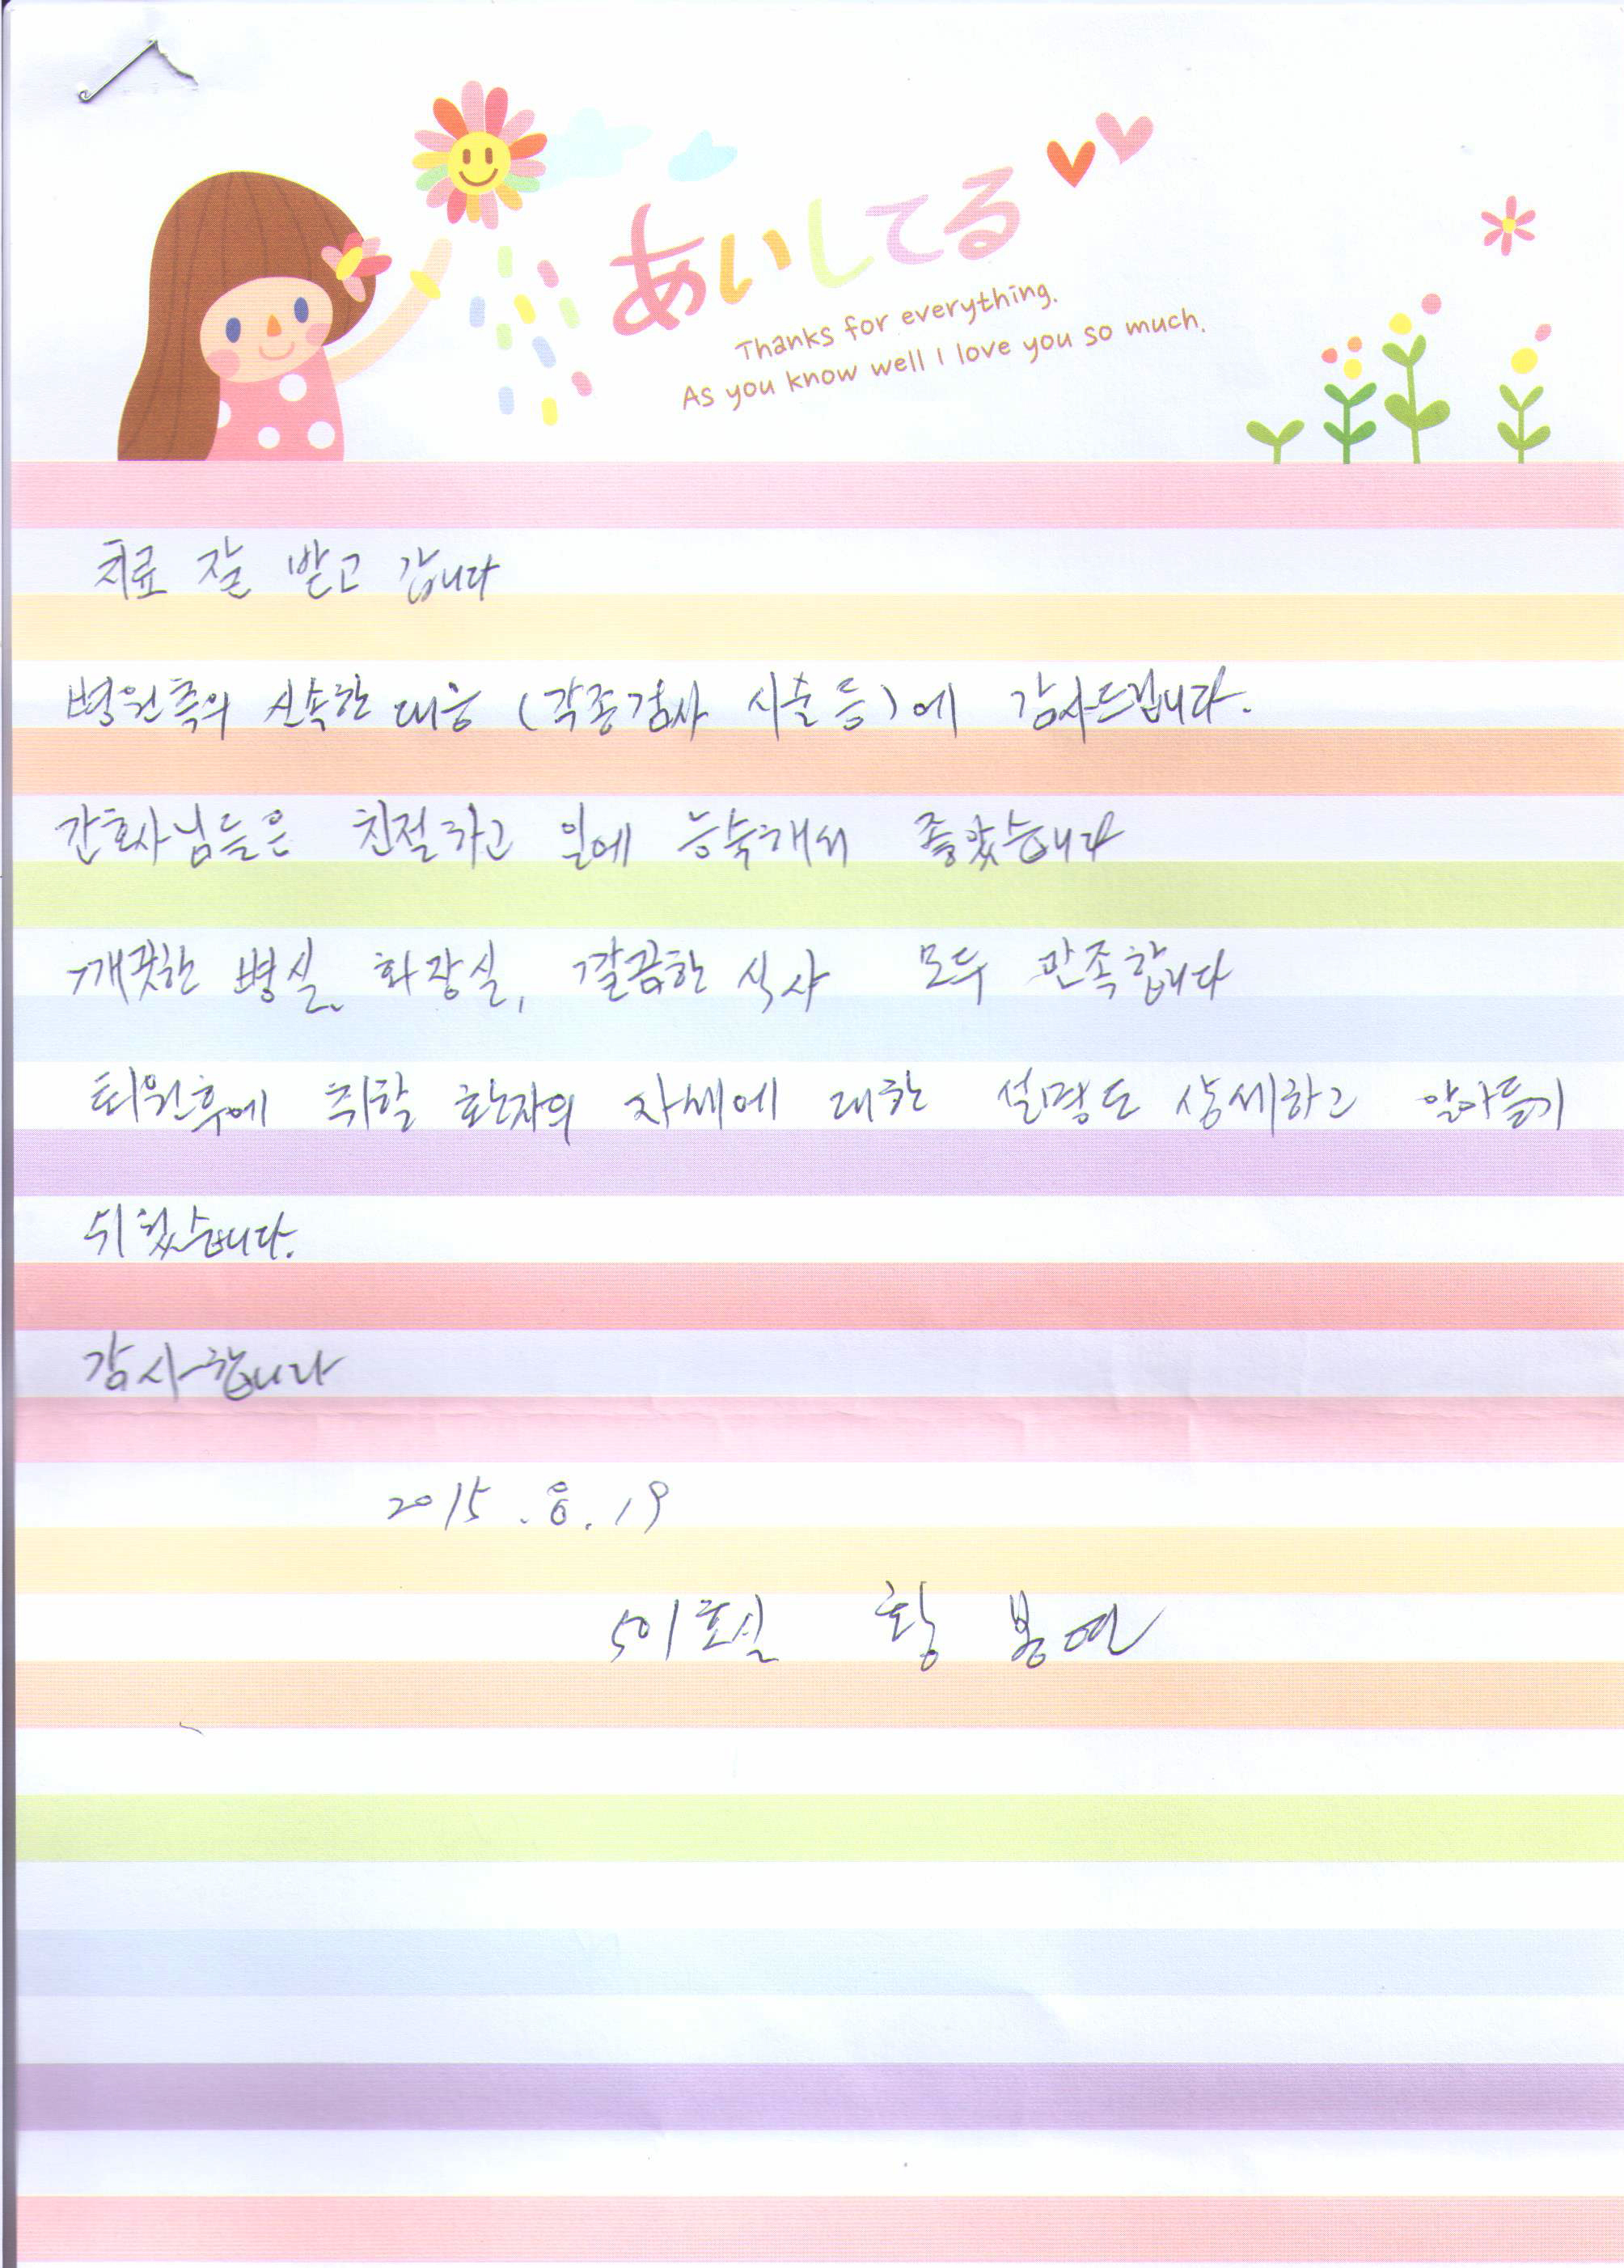 あいしてる
Thanks for everything.
As you know well I love you so much.
치료 잘 받고 갑니다
병원측의 신속한 대응 (각종검사 시술 등)에 감사드립니다.
간호사님들은 친절하고 일에 능숙해서 좋았습니다
깨끗한 병실, 화장실, 깔끔한 식사 모두 만족합니다
퇴원후에 취할 환자의 자세에 대한 설명도 상세하고 알아듣기
쉬웠습니다.
감사합니다
2015.8.19
501호실 황봉연